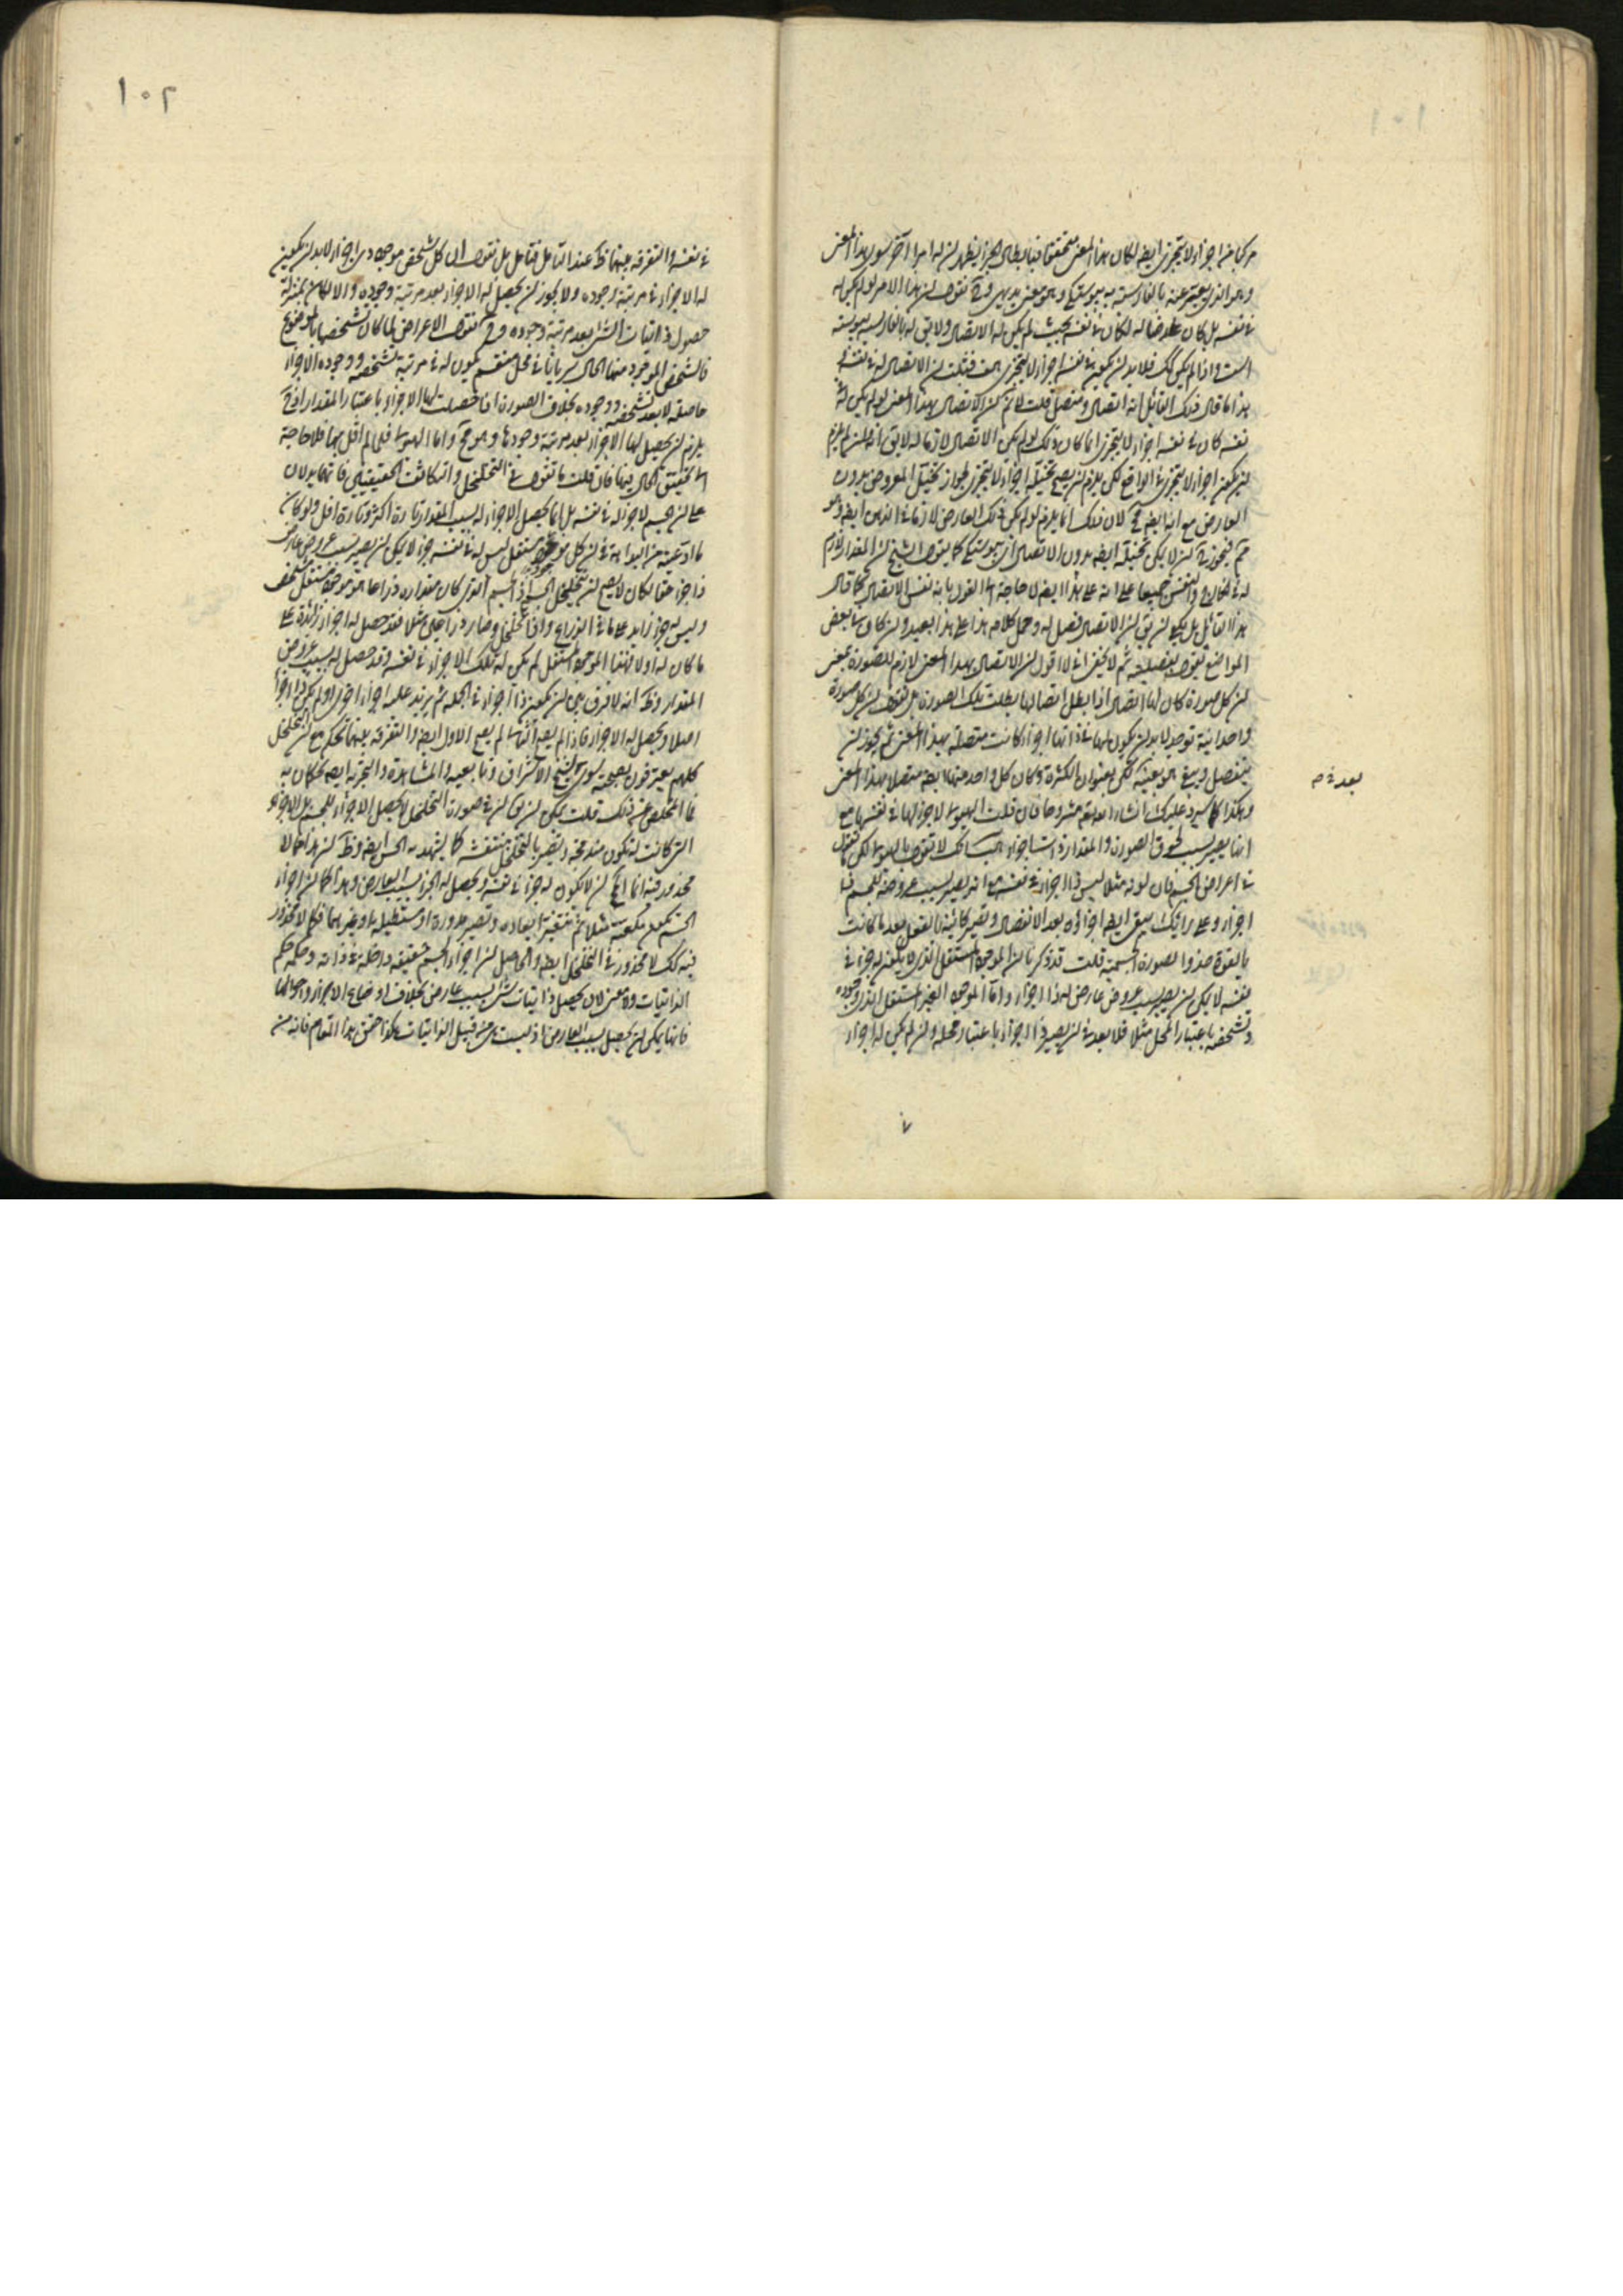 ١٠١
مركبا من اجزاء لا يتجزى ايضا لكان هذا المعنى متحققا فبابطال الجزء يظهر ان له امرا آخر سوى هذا المعنى
وهو الذى يعبر عنه بالفارسية به پيوستگى وهو معنى بديهى وح نقول ان هذا الامر لو لم يكن له
فى نفسه بل كان عارضا له لكان فى نفسه بحيث لم يكن له الاتصال ولا يق له بالفارسية پيوسته
است واذا لم يكن كك فلابد ان يكون فى نفسه اجزاء لا يتجزى هف فثبت ان الاتصال له فى نفسه
هذا ما قال ذلك القائل انه اتصال ومتصل قلت لانم ان الاتصال بهذا المعنى لو لم يكن له فى
نفسه كان فى نفسه اجزاء لا يتجزى انما كان ذلك لو لم يكن الاتصال لازما له لا يق انه وان لم يلزم
ان يكون اجزاء لا يتجزى فى الواقع لكن يلزم ان يصح تخيله اجزاء لا يتجزى لجواز تخيل المعروض بدون
العارض مع انه ايضا مح لان ذلك انما يلزم لو لم يكن ذلك العارض لازما فى الذهن ايضا وهو
مم فيجوز ان لا يمكن تخيله ايضا بدون الاتصال اى پيوستگى كما يقول الشيخ ان المقدار لازم
له فى الخارج والنفس جميعا على انه على هذا ايضا لا حاجة الى القول بانه نفس الاتصال كما قال
هذا القائل بل يكفى ان يق ان الاتصال فصل له وحمل كلامه هذا على هذا بعيد وان كان فى بعض
المواضع يقول بفصليته ثم لا يخفى انى لا اقول ان الاتصال بهذا المعنى لازم للصورة بمعنى
ان كل صورة كان لها اتصال اذا بطل اتصالها بطلت تلك الصورة بل نقول ان كل صورة
واحدانية توجد لابد ان يكون لها فى ذاتها اجزاء كانت متصلة بهذا المعنى ثم يجوز ان
ينفصل ويبقى هو بعينه لكن بعنوان الكثرة وكان كل واحد منهما ايضا متصلا بهذا المعنى
وهكذا كما سيرد عليك انشاء الله تعالى مشروحا فان قلت الهيولى لا جزء لها فى نفسها مع
انها يصير بسبب لحوق الصورة والمقدار ذات اجزاء هب انك لا تقول بالهيولى لكن نقول
فى اعراض الجسم فان لونه مثلا ليس ذا اجزاء فى نفسه مع انه يصير بسبب عروضه للجسم ذا
اجزاء وعلى رايك يبقى ايضا اجزاؤه بعد الانفصال وتصير كائنة بالفعل بعد ما كانت
بالقوة حذو الصورة الجسمية قلت قد ذكرنا ان الموجود المستقل الذى لا يكون له جزء فى
نفسه لا يمكن ان يصير بسبب عروض عارض له ذا اجزاء واما الموجود الغير المستقل الذى وجوده
وتشخصه باعتبار المحل مثلا فلا بعد فى ان يصير ذا اجزاء باعتبار محله وان لم يكن له اجزاء
بعد فى م
١٠٢
فى نفسه والتفرقة بينهما ظ عند التأمل فتأمل بل نقول ان كل شخص موجود ذى اجزاء لابد ان يكون
له الاجزاء فى مرتبة وجوده ولا يجوز ان يحصل له الاجزاء بعد مرتبة وجوده والا لكان بمنزلة
حصول ذاتيات الشئ بعد مرتبة وجوده وح نقول الاعراض لما كان تشخصها بالموضوع
فالشخص الموجود منها الحال سريانا فى محل منقسم يكون له فى مرتبة تشخصه ووجوده الاجزاء
حاصلة لا بعد تشخصه ووجوده بخلاف الصورة اذا حصلت لها الاجزاء باعتبار المقدار اذ ح
يلزم ان يحصل لها الاجزاء بعد مرتبة وجودها وهو مح واما الهيولى فلما لم اقل بها فلا حاجة
الى تحقيق الحال فيها فان قلت ما تقول فى التخلخل والتكاثف الحقيقيين فانهما يدلان
على ان الجسم لا جزء له فى نفسه بل انما يحصل الاجزاء له بسبب المقدار تارة اكثر وتارة اقل ولو كان
ما ادعيته من البداهة فى ان كل موجود مستقل ليس له فى نفسه جزء لا يمكن ان يصير بسبب عروض عارض
ذا جزء حقا لكان لا يصح ان يتخلخل الجسم اذ الجسم الذى كان مقداره ذراعا هو موجود مستقل شخص
وليس له جزء زايد على ما فى الذراع واذا تخلخل وصار ذراعين مثلا فقد حصل له اجزاء زائدة على
ما كان له اولا فهذا الموجود المستقل لم يكن له تلك الاجزاء فى نفسه وقد حصل له بسبب عروض
المقدار وظ انه لا فرق بين ان يكون ذا اجزاء فى الجملة ثم يزيد عليه اجزاء اخرى او لم يكن ذا اجزاء
اصلا ويحصل له الاجزاء فاذا لم يصح الثانى لم يصح الاول ايضا والتفرقة بينهما تحكم مع ان التخلخل
كلهم يعترفون بصحته سوى شيخ الاشراق وتابعيه والمشاهدة والتجربة ايضا يحكمان به
فما المخلص عن ذلك قلت يمكن ان يق ان فى صورة التخلخل لا يحصل الاجزاء للجسم بل الاجزاء
التى كانت له تكون مندمجة ويصير بالتخلخل منتفشة كما يشهد به الحس ايضا وظ ان هذا مما لا
محذور فيه انما المح ان لا يكون له جزء فى نفسه ويحصل له الجزء بسبب العارض وهذا كما ان اجزاء
الجسم يكون مكعبة مثلا ثم يتغير ابعاده ويصير مدورة او مستطيلة او غيرهما فكما لا محذور
فيه كك لا محذور فى التخلخل ايضا والحاصل ان اجزاء الجسم حقيقة داخلة فى ذاته وحكمه حكم
الذاتيات ولا معنى لان يحصل ذاتيات شئ بسبب عارض بخلاف اوضاع الاجزاء واحوالها
فانها يمكن ان يحصل بسبب العارض اذ ليست هى من قبيل الذاتيات هكذا حقق هذا المقام فانه من